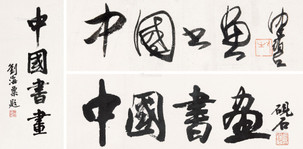 中國書畫
劉海粟題
中國書畫
中國書畫
硯石